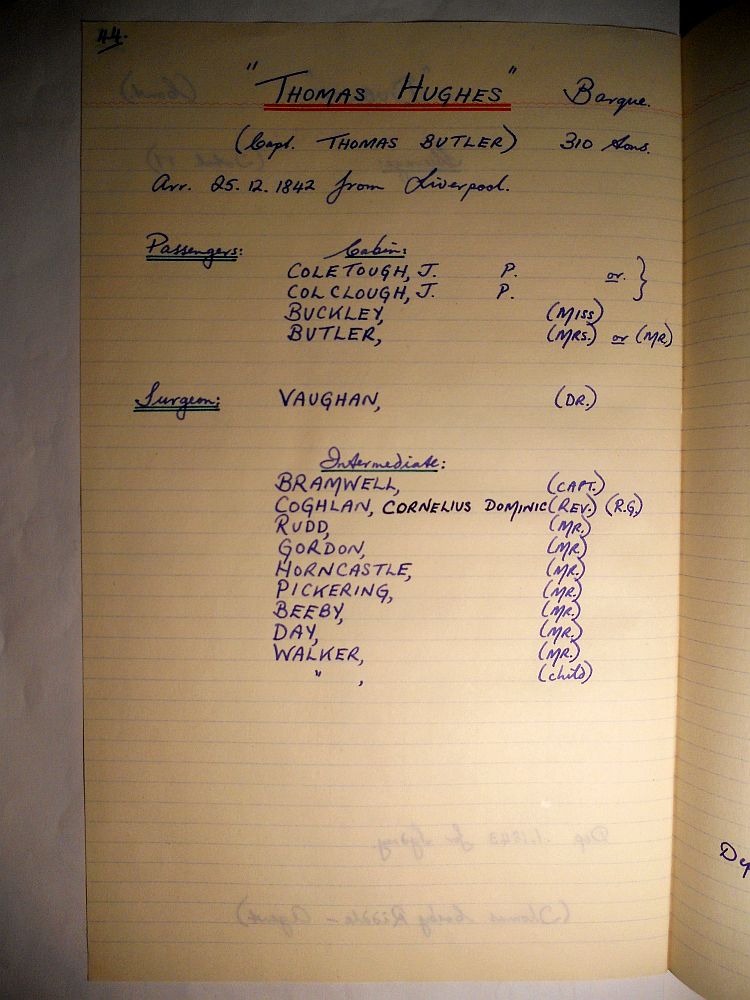 44.
"THOMAS HUGHES" Barque.
(Capt. THOMAS BUTLER) 310 tons.
Arr. 25.12.1842 from Liverpool.
Passengers: Cabin:
COLETOUGH, J. P. or }
COLCLOUGH, J. P.
BUCKLEY, (MISS)
BUTLER, (MRS.) or (MR)
Surgeon: VAUGHAN, (DR.)
Intermediate:
BRAMWELL, (CAPT.)
COGHLAN, CORNELIUS DOMINIC (REV.) (R.G.)
RUDD, (MR.)
GORDON, (MR)
HORNCASTLE, (MR.)
PICKERING, (MR.)
BEEBY, (MR.)
DAY, (MR.)
WALKER, (MR.)
" , (child)
Dep